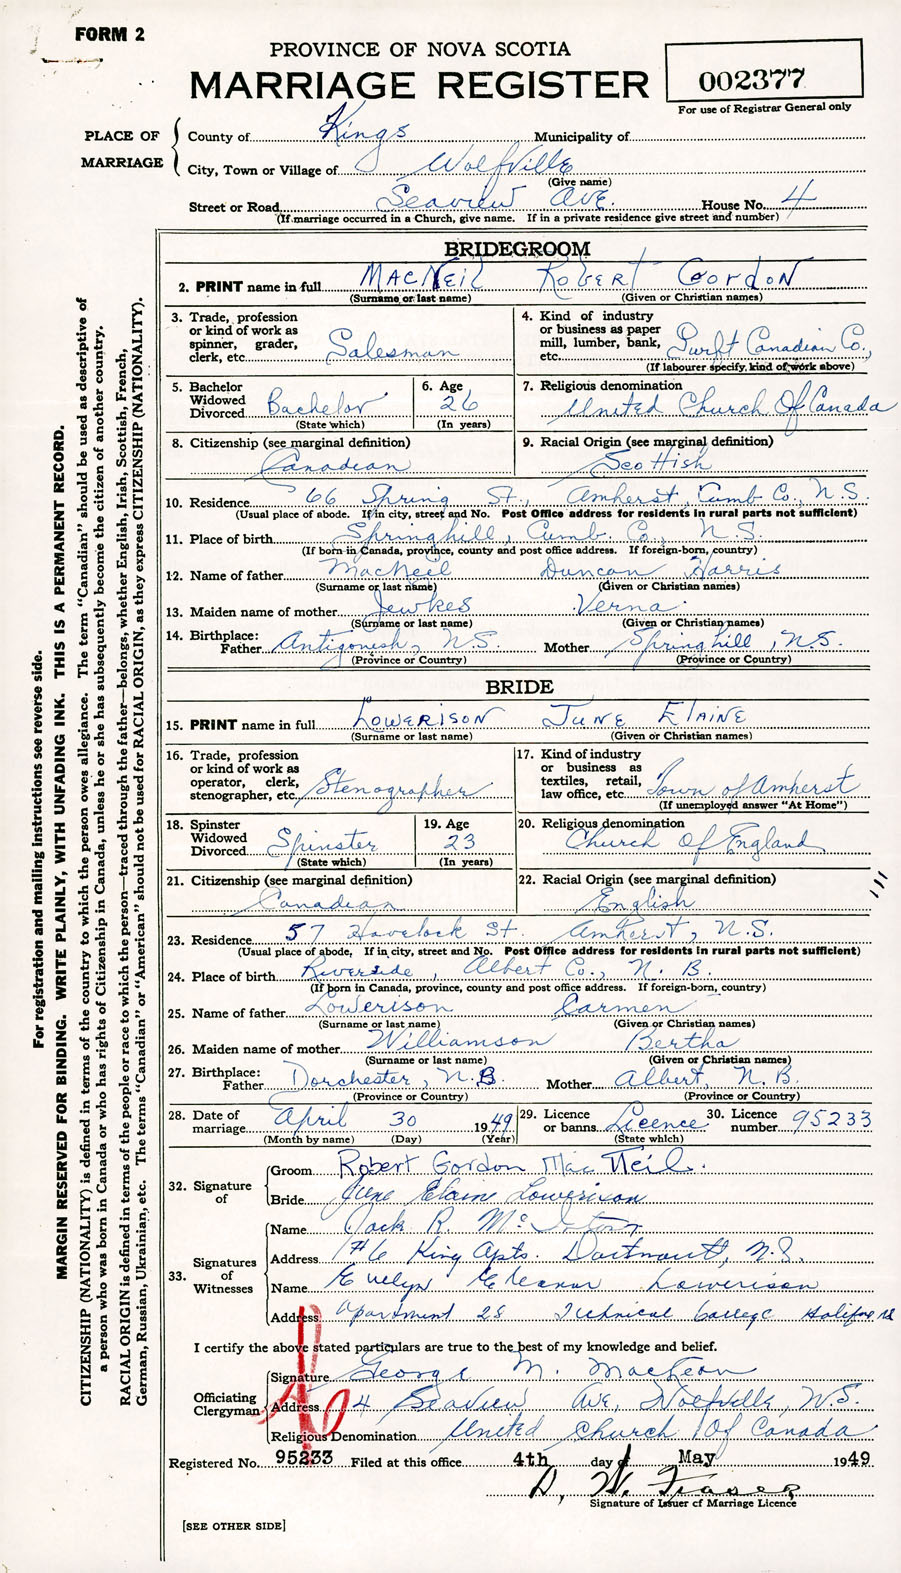 FORM 2
PROVINCE OF NOVA SCOTIA
MARRIAGE REGISTER
002377
For use of Registrar General only
PLACE OF MARRIAGE
County of Kings Municipality of
City, Town or Village of Wolfville
(Give name)
Street or Road Seaview Ave. House No. 4
(If marriage occurred in a Church, give name. If in a private residence give street and number)
BRIDEGROOM
2. PRINT name in full MacNeil Robert Gordon
(Surname or last name) (Given or Christian names)
3. Trade, profession or kind of work as spinner, grader, clerk, etc. Salesman
4. Kind of industry or business as paper mill, lumber, bank, etc. Swift Canadian Co.,
(If labourer specify kind of work above)
5. Bachelor Widowed Divorced Bachelor
(State which)
6. Age 26
(In years)
7. Religious denomination
United Church Of Canada
8. Citizenship (see marginal definition)
Canadian
9. Racial Origin (see marginal definition)
Scottish
10. Residence 66 Spring St., Amherst, Cumb Co., N.S.
(Usual place of abode. If in city, street and No. Post Office address for residents in rural parts not sufficient)
11. Place of birth Springhill, Cumb. Co., N.S.
(If born in Canada, province, county and post office address. If foreign-born, country)
12. Name of father MacNeil Duncan Harris
(Surname or last name) (Given or Christian names)
13. Maiden name of mother Jewkes Verna
(Surname or last name) (Given or Christian names)
14. Birthplace:
Father Antigonish, N.S. Mother Springhill, N.S.
(Province or Country) (Province or Country)
BRIDE
15. PRINT name in full Lowerison June Elaine
(Surname or last name) (Given or Christian names)
16. Trade, profession or kind of work as operator, clerk, stenographer, etc. Stenographer
17. Kind of industry or business as textiles, retail, law office, etc. Town of Amherst
(If unemployed answer "At Home")
18. Spinster Widowed Divorced Spinster
(State which)
19. Age 23
(In years)
20. Religious denomination
Church Of England
21. Citizenship (see marginal definition)
Canadian
22. Racial Origin (see marginal definition)
English
23. Residence 57 Havelock St. Amherst, N.S.
(Usual place of abode. If in city, street and No. Post Office address for residents in rural parts not sufficient)
24. Place of birth Riverside, Albert Co., N. B.
(If born in Canada, province, county and post office address. If foreign-born, country)
25. Name of father Lowerison Carmen
(Surname or last name) (Given or Christian names)
26. Maiden name of mother Williamson Bertha
(Surname or last name) (Given or Christian names)
27. Birthplace:
Father Dorchester, N.B. Mother Albert, N.B.
(Province or Country) (Province or Country)
28. Date of marriage April 30 1949
(Month by name) (Day) (Year)
29. Licence or banns Licence
(State which)
30. Licence number 95233
32. Signature of
Groom Robert Gordon MacNeil.
Bride June Elaine Lowerison
33. Signatures of Witnesses
Name Jack R.
Address #6 King Apts. Dartmouth, N.S.
Name Evelyn Eleanor Lowerison
Address Apartment 28 Technical College Halifax NS
I certify the above stated particulars are true to the best of my knowledge and belief.
Officiating Clergyman
Signature George M. MacLean
Address 4 Seaview Ave, Wolfville, N.S.
Religious Denomination United Church Of Canada
Registered No. 95233 Filed at this office 4th day of May 1949
D. W. Fraser
Signature of Issuer of Marriage Licence
[SEE OTHER SIDE]
For registration and mailing instructions see reverse side.
MARGIN RESERVED FOR BINDING. WRITE PLAINLY, WITH UNFADING INK. THIS IS A PERMANENT RECORD.
CITIZENSHIP (NATIONALITY) is defined in terms of the country to which the person owes allegiance. The term "Canadian" should be used as descriptive of
a person who was born in Canada or who has rights of Citizenship in Canada, unless he or she has subsequently become the citizen of another country.
RACIAL ORIGIN is defined in terms of the people or race to which the person—traced through the father—belongs, whether English, Irish, Scottish, French,
German, Russian, Ukrainian, etc. The terms "Canadian" or "American" should not be used for RACIAL ORIGIN, as they express CITIZENSHIP (NATIONALITY).